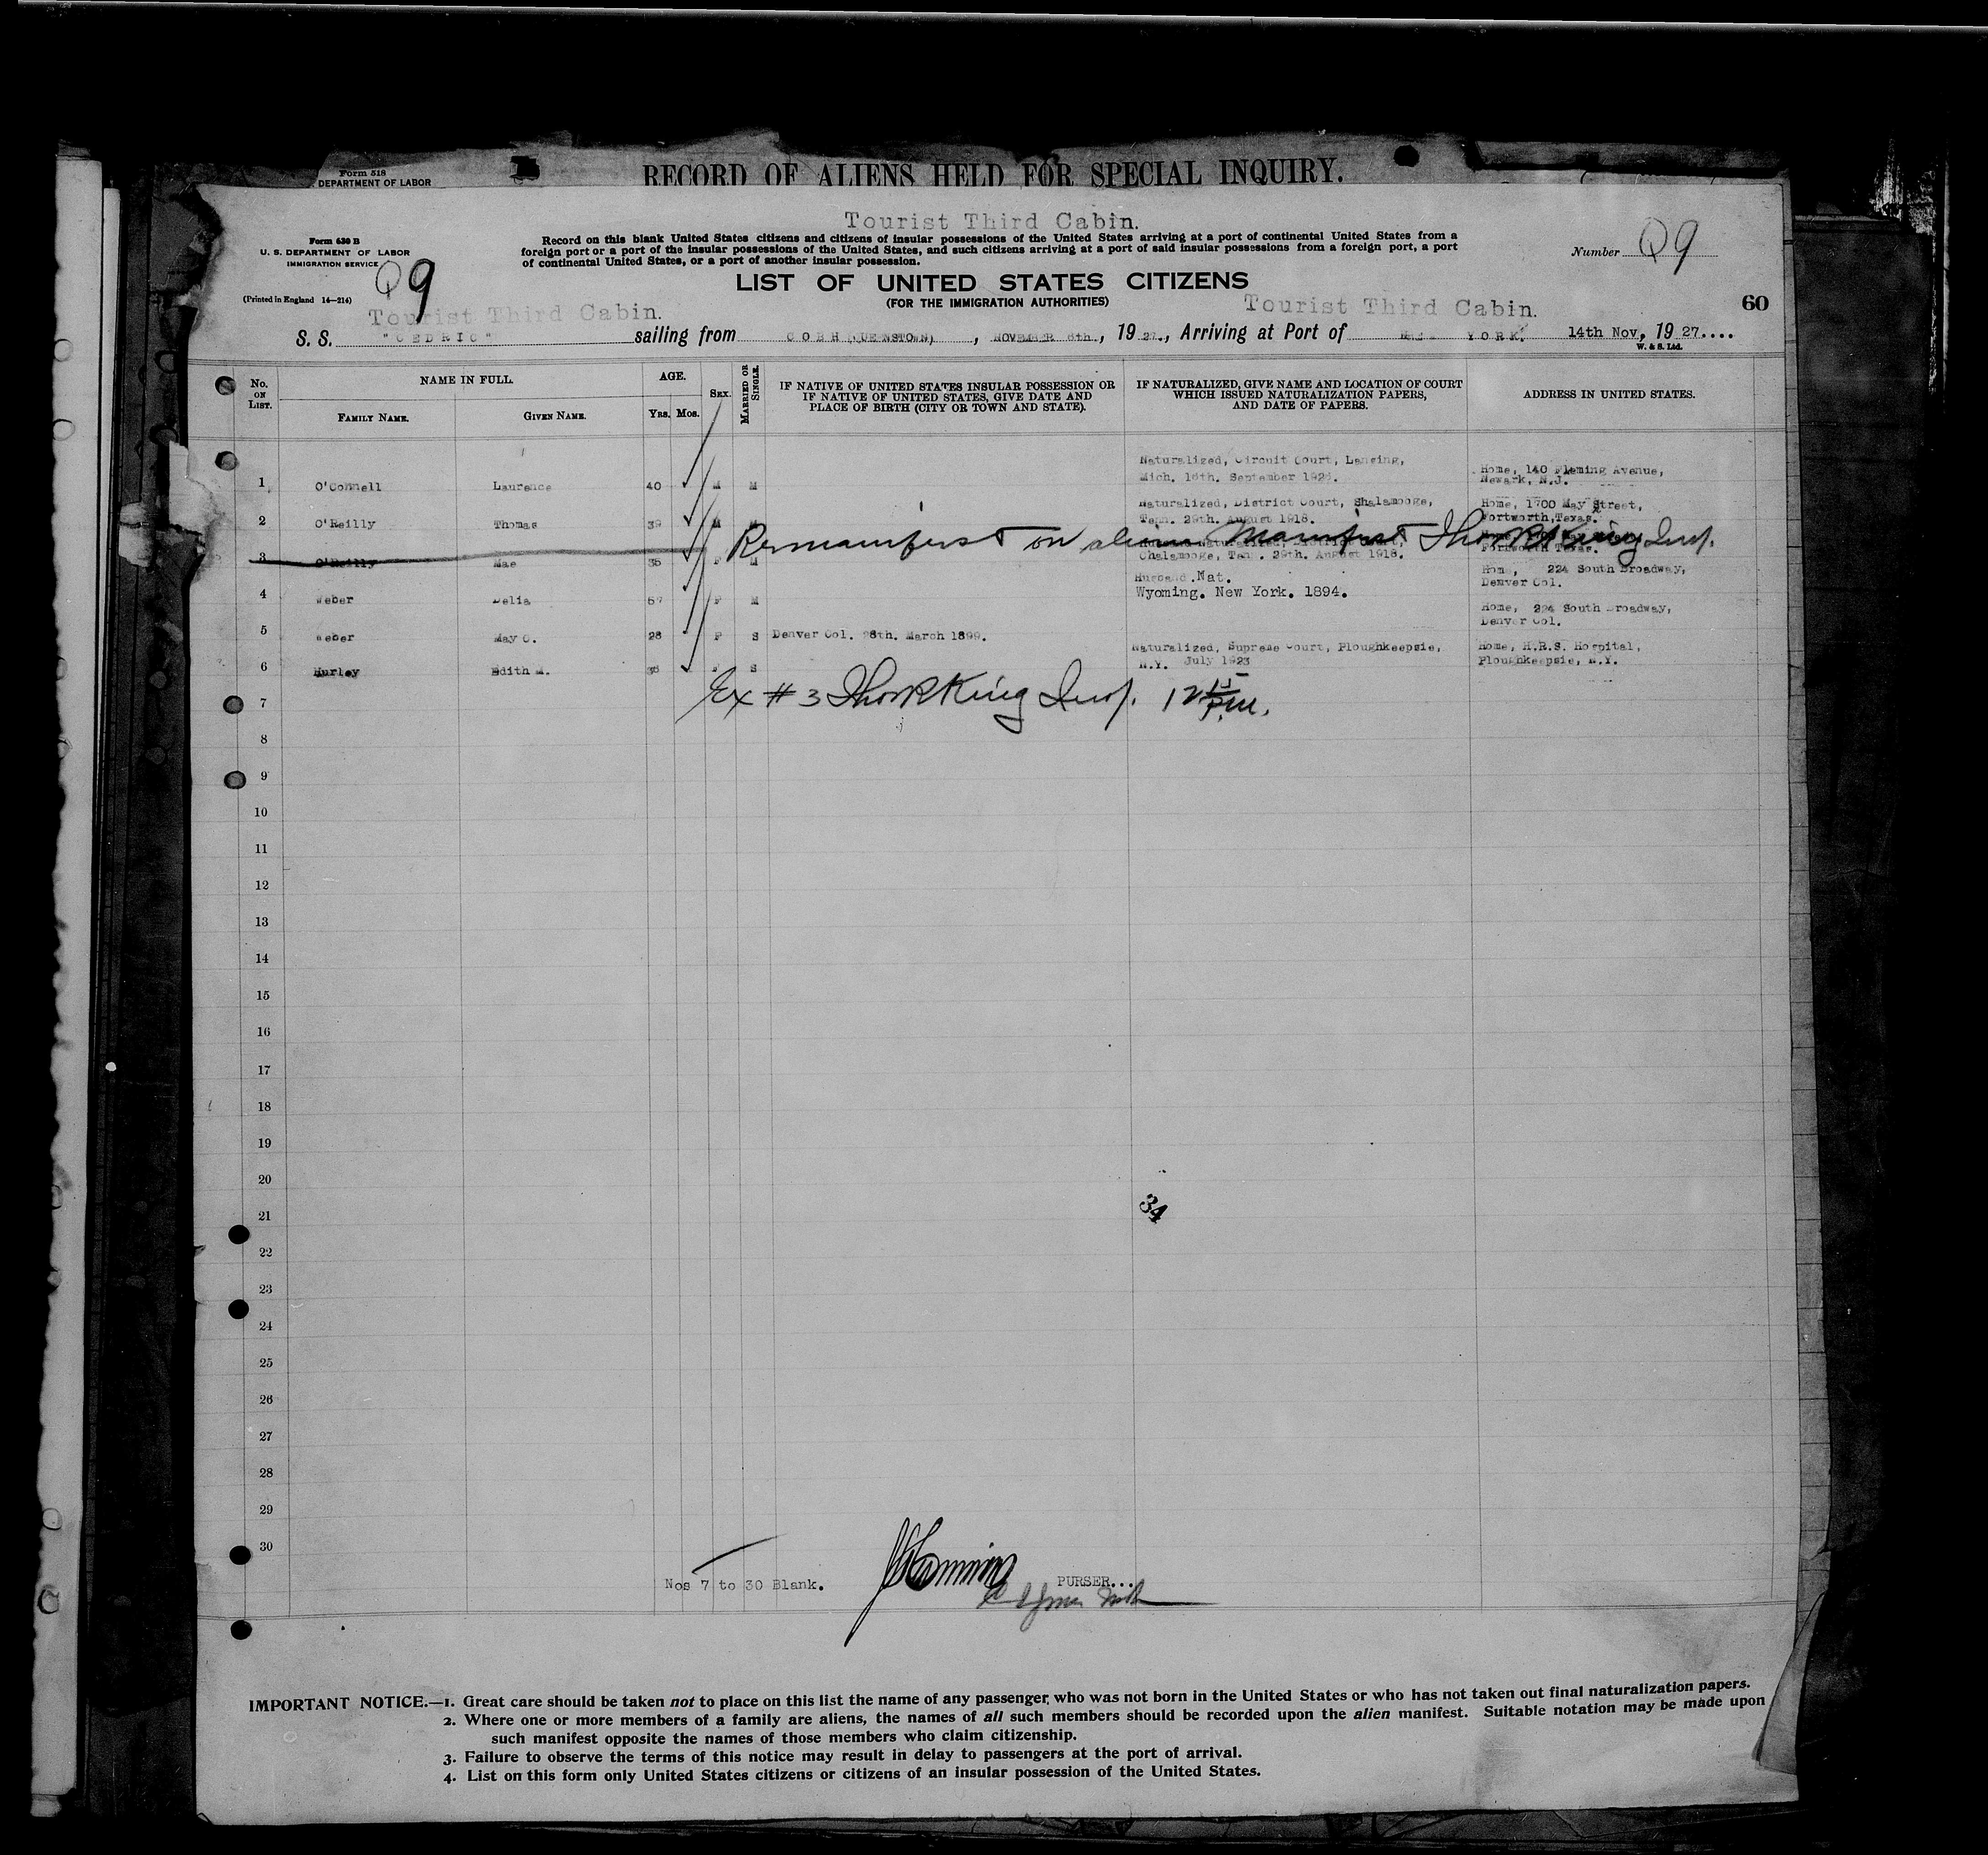 Form 518
DEPARTMENT OF LABOR
RECORD OF ALIENS HELD FOR SPECIAL INQUIRY.
Tourist Third Cabin.
Form 630 B
U. S. DEPARTMENT OF LABOR
IMMIGRATION SERVICE
Q9
(Printed in England 14—214)
Record on this blank United States citizens and citizens of insular possessions of the United States arriving at a port of continental United States from a
foreign port or a port of the insular possessions of the United States, and such citizens arriving at a port of said insular possessions from a foreign port, a port
of continental United States, or a port of another insular possession.
Number Q9
LIST OF UNITED STATES CITIZENS
(FOR THE IMMIGRATION AUTHORITIES)
60
Tourist Third Cabin. Tourist Third Cabin.
S. S. "CEDRIC" sailing from COBH (QUEENSTOWN), NOVEMBER 6th., 1927., Arriving at Port of NEW YORK. 14th Nov, 1927....
W. & S. Ltd.
No. ON LIST. NAME IN FULL. FAMILY NAME. GIVEN NAME. AGE. YRS. MOS. SEX. MARRIED OR SINGLE. IF NATIVE OF UNITED STATES INSULAR POSSESSION OR IF NATIVE OF UNITED STATES, GIVE DATE AND PLACE OF BIRTH (CITY OR TOWN AND STATE). IF NATURALIZED, GIVE NAME AND LOCATION OF COURT WHICH ISSUED NATURALIZATION PAPERS, AND DATE OF PAPERS. ADDRESS IN UNITED STATES.
1 O'Connell Laurence 40 M M Naturalized, Circuit Court, Lansing, Mich. 16th. September Home, 140 Fleming Avenue, Newark, N.J.
2 O'Reilly Thomas 39 M M Naturalized, District Court, Shalamooge, Tenn. 29th. August 1918. Home, 1700 May Street, Fortworth, Texas.
3 O'Reilly Mae 35 F M Chalamooge, Tenn. 29th. August 1918. Fortworth Texas.
Remanifest on alien Manifest Thos R King Insp.
4 Weber Delia 57 F M Husband Nat. Wyoming. New York. 1894. Home, 224 South Broadway, Denver Col.
5 Weber May C. 28 F S Denver Col. 28th. March 1899. Home, 224 South Broadway, Denver Col.
6 Hurley Edith M. 38 F S Naturalized, Supreme Court, Ploughkeepsie, N.Y. July 1923 Home, H.R.S. Hospital, Ploughkeepsie, N.Y.
7 Ex # 3 Thos R King Insp. 12 15 P.M.
8
9
10
11
12
13
14
15
16
17
18
19
20
21
34
22
23
24
25
26
27
28
29
30
Nos 7 to 30 Blank. PURSER...
IMPORTANT NOTICE.—1. Great care should be taken not to place on this list the name of any passenger, who was not born in the United States or who has not taken out final naturalization papers.
2. Where one or more members of a family are aliens, the names of all such members should be recorded upon the alien manifest. Suitable notation may be made upon
such manifest opposite the names of those members who claim citizenship.
3. Failure to observe the terms of this notice may result in delay to passengers at the port of arrival.
4. List on this form only United States citizens or citizens of an insular possession of the United States.